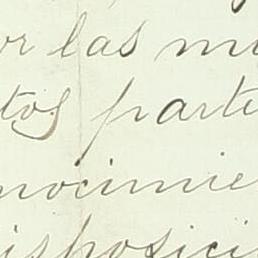 or las m
tos parte
nocimie
disposici